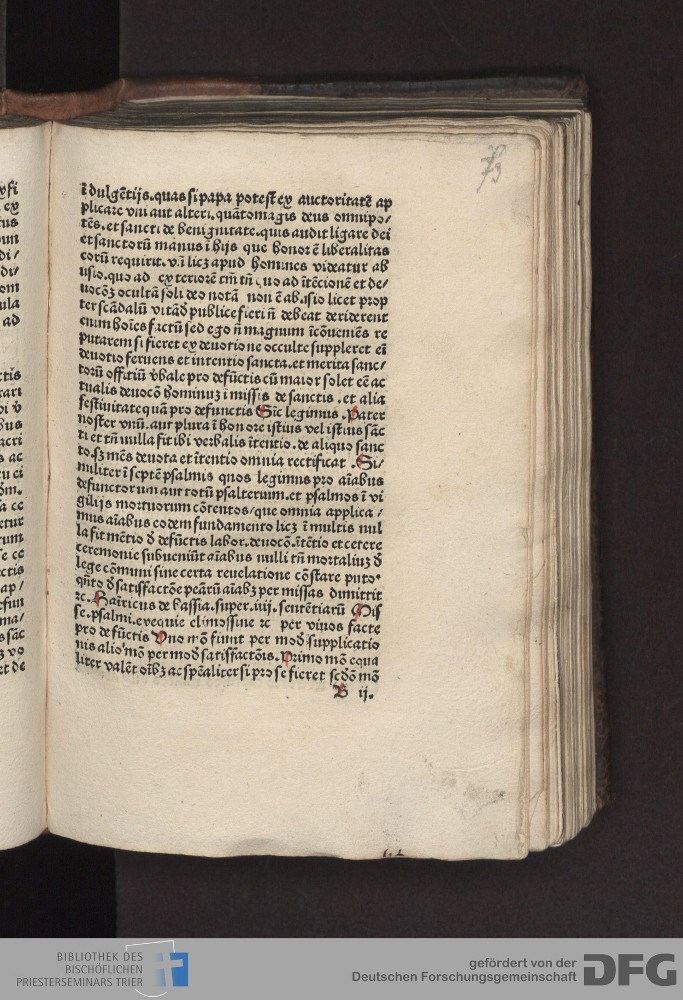 73
ī dulgētijs. quas si papa potest ex auctoritatē ap
plicare vni aut alteri. quātomagis deus omnipo/
tēs. et sancti de benignitate. quis audit ligare dei
et sanctorū manus ī hijs que honorē ē liberalitas
eorū requirit. vn̄ licꝫ apud homines videatur ab
usio. quo ad exteriorē tm̄ tn̄ quo ad ītēcionē et de/
uocōꝫ ocultā soli deo notā non ē abusio licet prop
ter scādalū vitād publice fieri n̄ debeat deriderent
enim hoīes factū sed ego n̄ magnum īcōueniēs re
putarem si fieret ex deuotione occulte suppleret eī
deuotio feruens et intentio sancta. et merita sanc/
torū offitiū vbale pro defūctis cū maior solet eē ac
tualis deuocō hominuꝫ ī missis de sanctis. et alia
festiuitate quā pro defunctis Sic legimus. Pater
noster vnū. aut plura ī honore istius vel istius sāc
ti et tn̄ nulla fit ibi verbalis ītentio. de aliquo sanc
to. sꝫ mēs deuota et ītentio omnia rectificat. Si/
militer ī septē psalmis quos legimus pro aīabus
defunctorum aut totū psalterium. et psalmos ī vi
gilijs mortuorum cōtentos/que omnia applica/
mus aīabus eodem fundamento licꝫ ī multis nul
la fit mētio d̄ defūctis labor. deuocō. ītētio et cetere
ceremonie subueniūt aīabus nulli tn̄ mortaliuꝫ d̄
lege cōmuni sine certa reuelatione cōstare puto.
qn̄to d̄ satisfactōe penarū aīabꝫ per missas dimittit
ꝛc. Haīricus de hassia. super. iiij. sentētiarū Mis
se. psalmi. exequie elimossine ꝛc per viuos facte
pro defūctis Duo mō fiunt per modū supplicatio
nis alio mō per modū satisfactōis. Primo mō equa
liter valēt oībꝫ ac spēaliter si pro se fieret scdō mō
B ij.
BIBLIOTHEK DES
BISCHÖFLICHEN
PRIESTERSEMINARS TRIER
gefördert von der
Deutschen Forschungsgemeinschaft
DFG